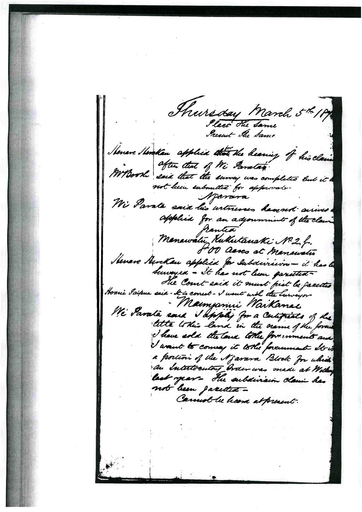 Thursday March 5th 18
Place the Same
Present the Same
applied the hearing of his claim
after that of Wi Parata
Mr Booth said that the survey was completed but it
not been submitted for approval
Ngarara
Wi Parata said his witnesses have not arrived
applied for an adjournment of the claim
Granted
Manawatu Kukutauaki No 2
800 Acres at Manawatu
applied for Subdivision - it has
Surveyed - It has not been gazetted
The Court said it must first be gazetted
said I went with the Surveyor
Waikanae
Wi Parata said I apply for a Certificate of
title to this land in the name of the
I have sold the land to the Government and
I want to convey it to the Government It is
a portion of the Ngarara Block for which
an Interlocutory Order was made at
last year The subdivision claim has
not been gazetted
Cannot be heard at present